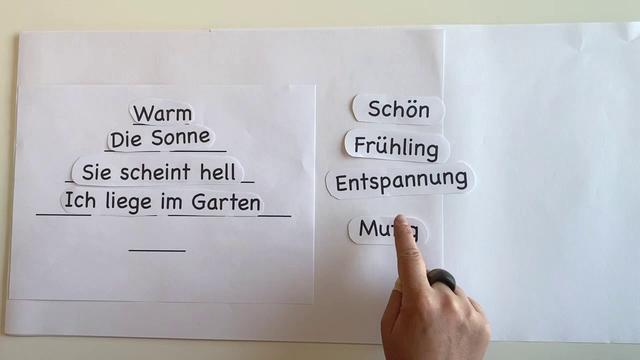 Warm
Die Sonne
Sie scheint hell
Ich liege im Garten
Schön
Frühling
Entspannung